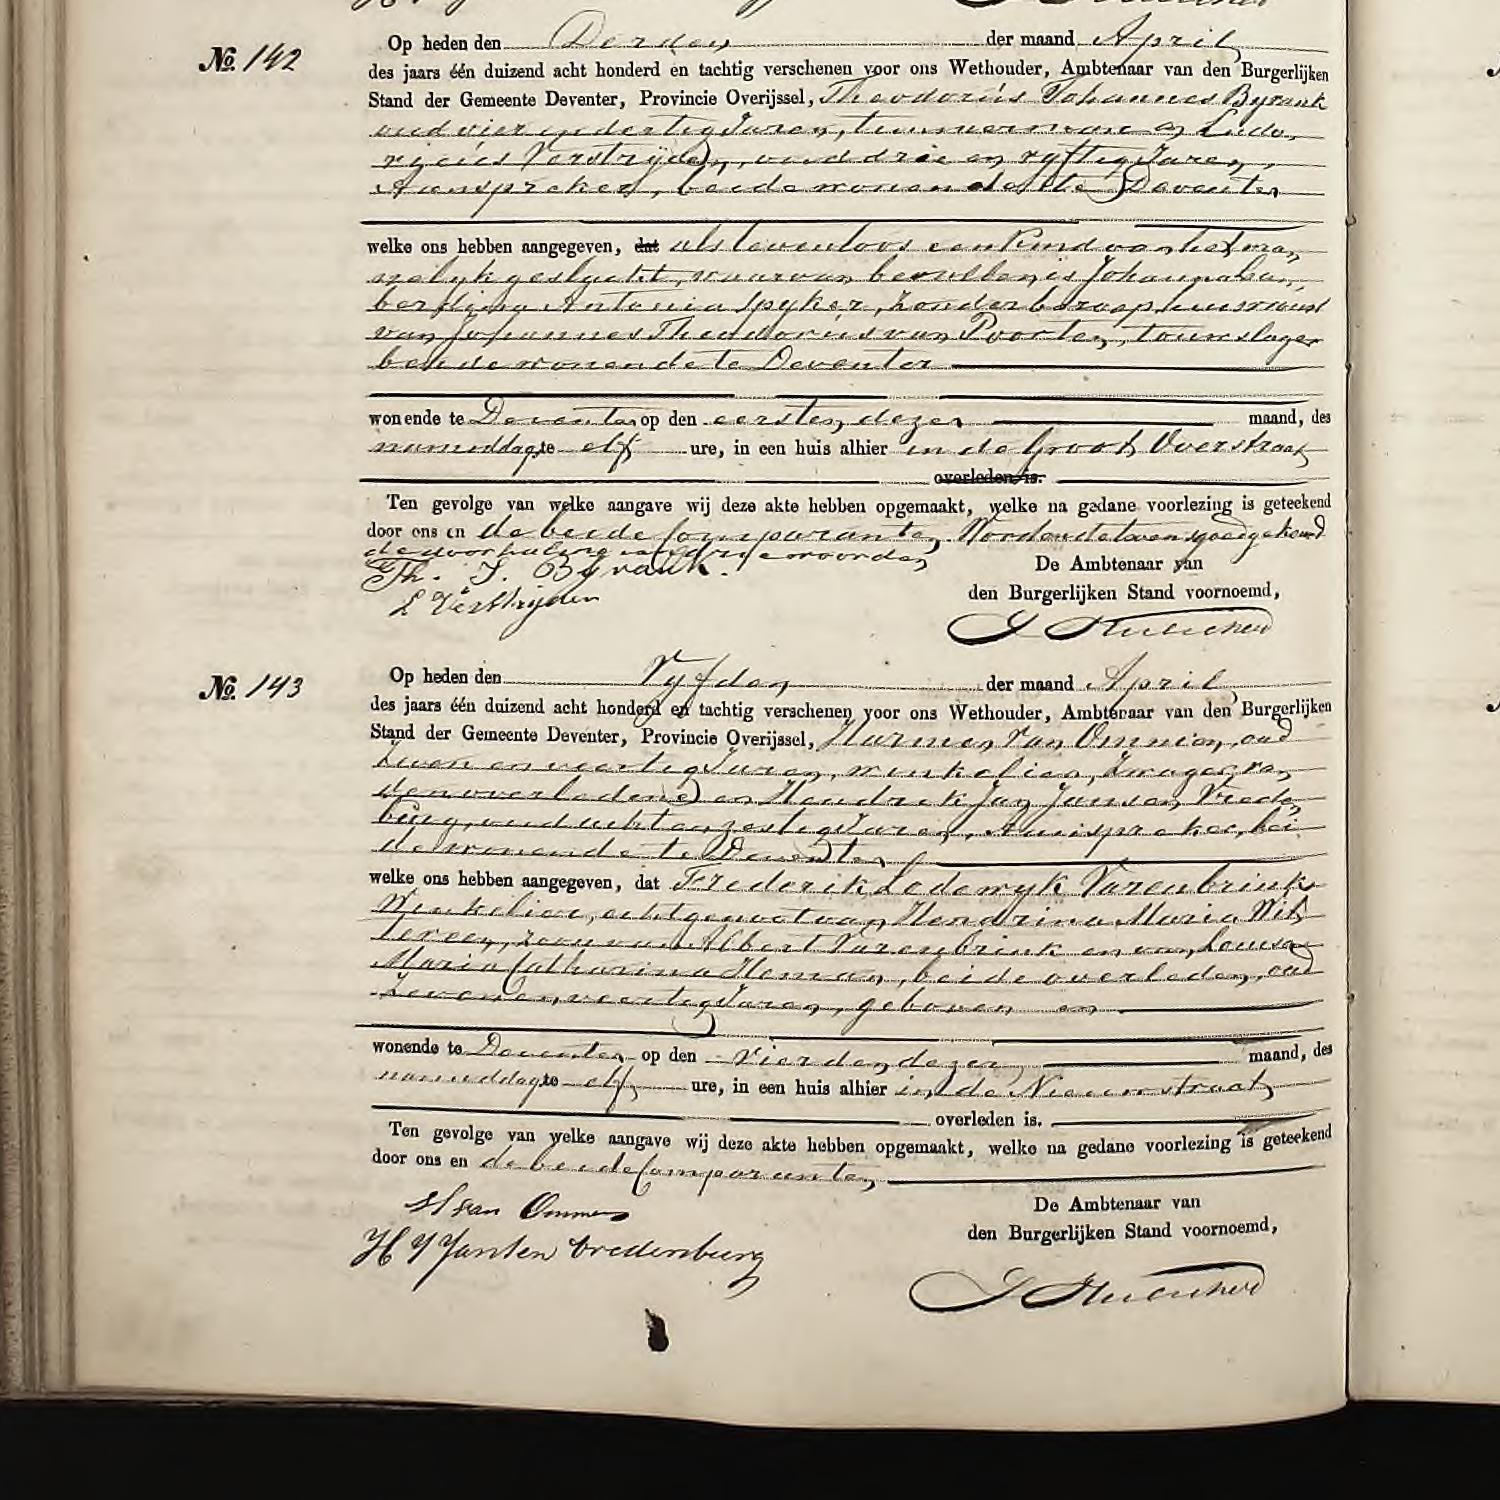 № 142
Op heden den Derden der maand April
des jaars één duizend acht honderd en tachtig verschenen voor ons Wethouder, Ambtenaar van den Burgerlijken
Stand der Gemeente Deventer, Provincie Overijssel, Theodorus Johannes Byvank
oud vier en dertig Jaren, timmerman en Ludo-
vicus Verstrijden, oud drie en vyftig Jaren,
Aanspreker, beide wonende te Deventer
welke ons hebben aangegeven, dat als levenloos een Kind van het man-
nelyk geslacht, waarvan bevallen is Johanna Lam-
berdina Antonia Spyker, zonder beroep, huisvrouw
van Johannes Theodorus van Poorten, touwslager
beide wonende te Deventer
wonende te Deventer op den eersten dezer maand, des
namiddags te elf ure, in een huis alhier in de Groote Overstraat
overleden is.
Ten gevolge van welke aangave wij deze akte hebben opgemaakt, welke na gedane voorlezing is geteekend
door ons en de beide Comparanten. Wordende tevens goedgekeurd
de doorhaling van drie woorden
Th. J. Byvank.
L Verstrijden
De Ambtenaar van
den Burgerlijken Stand voornoemd,
№ 143
Op heden den Vyfden der maand April
des jaars één duizend acht honderd en tachtig verschenen voor ons Wethouder, Ambtenaar van den Burgerlijken
Stand der Gemeente Deventer, Provincie Overijssel, Harmen van Ommen, oud
zeven en veertig Jaren, winkelier, Zwager van
den overledene en Hendrik Jan Jansen Vreden-
burg, oud acht en zestig Jaren, Aanspreker, bei-
de wonende te Deventer
welke ons hebben aangegeven, dat Frederik Lodewyk Varenbrink,
Winkelier, echtgenoot van Hendrina Maria Wil
zoon van Albert Varenbrink en van Louisa
Maria Catharina Heman, beide overleden, oud
zeven en veertig Jaren, geboren en
wonende te Deventer op den vierden dezer maand, des
namiddags te elf ure, in een huis alhier in de Nieuwstraat
overleden is.
Ten gevolge van welke aangave wij deze akte hebben opgemaakt, welke na gedane voorlezing is geteekend
door ons en de beide Comparanten
H van Ommen
H J Jansen Vredenburg
De Ambtenaar van
den Burgerlijken Stand voornoemd,